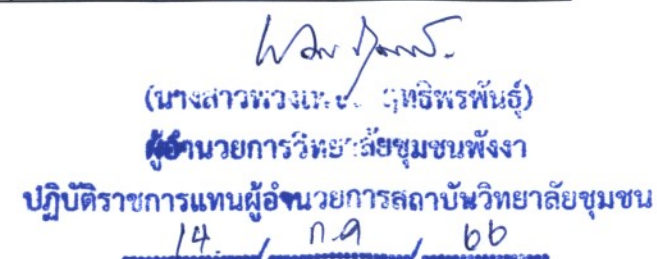 (นางสาวพวงเพชร ฤทธิพรพันธุ์)
ผู้อำนวยการวิทยาลัยชุมชนพังงา
ปฏิบัติราชการแทนผู้อำนวยการสถาบันวิทยาลัยชุมชน
14 / ก.ค / 66